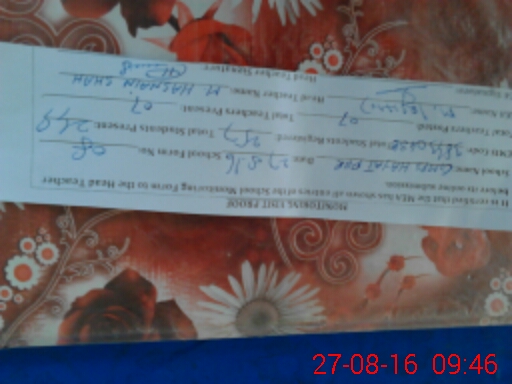 MONITORING VISIT PROOF
It is certified that the MEA has shown all entries of the School Monitoring Form to the Head Teacher
before its online submission.
School Name: Date: 27.8.16 School Form No: 08
EMIS Code: Total Students Registered: 257 Total Students Present: 249
Total Teachers Posted: 07 Total Teachers Present: 07
MEA Name: Head Teacher Name: M HASNAIN SHAH
Signature: Head Teacher Signature:
27-08-16 09:46